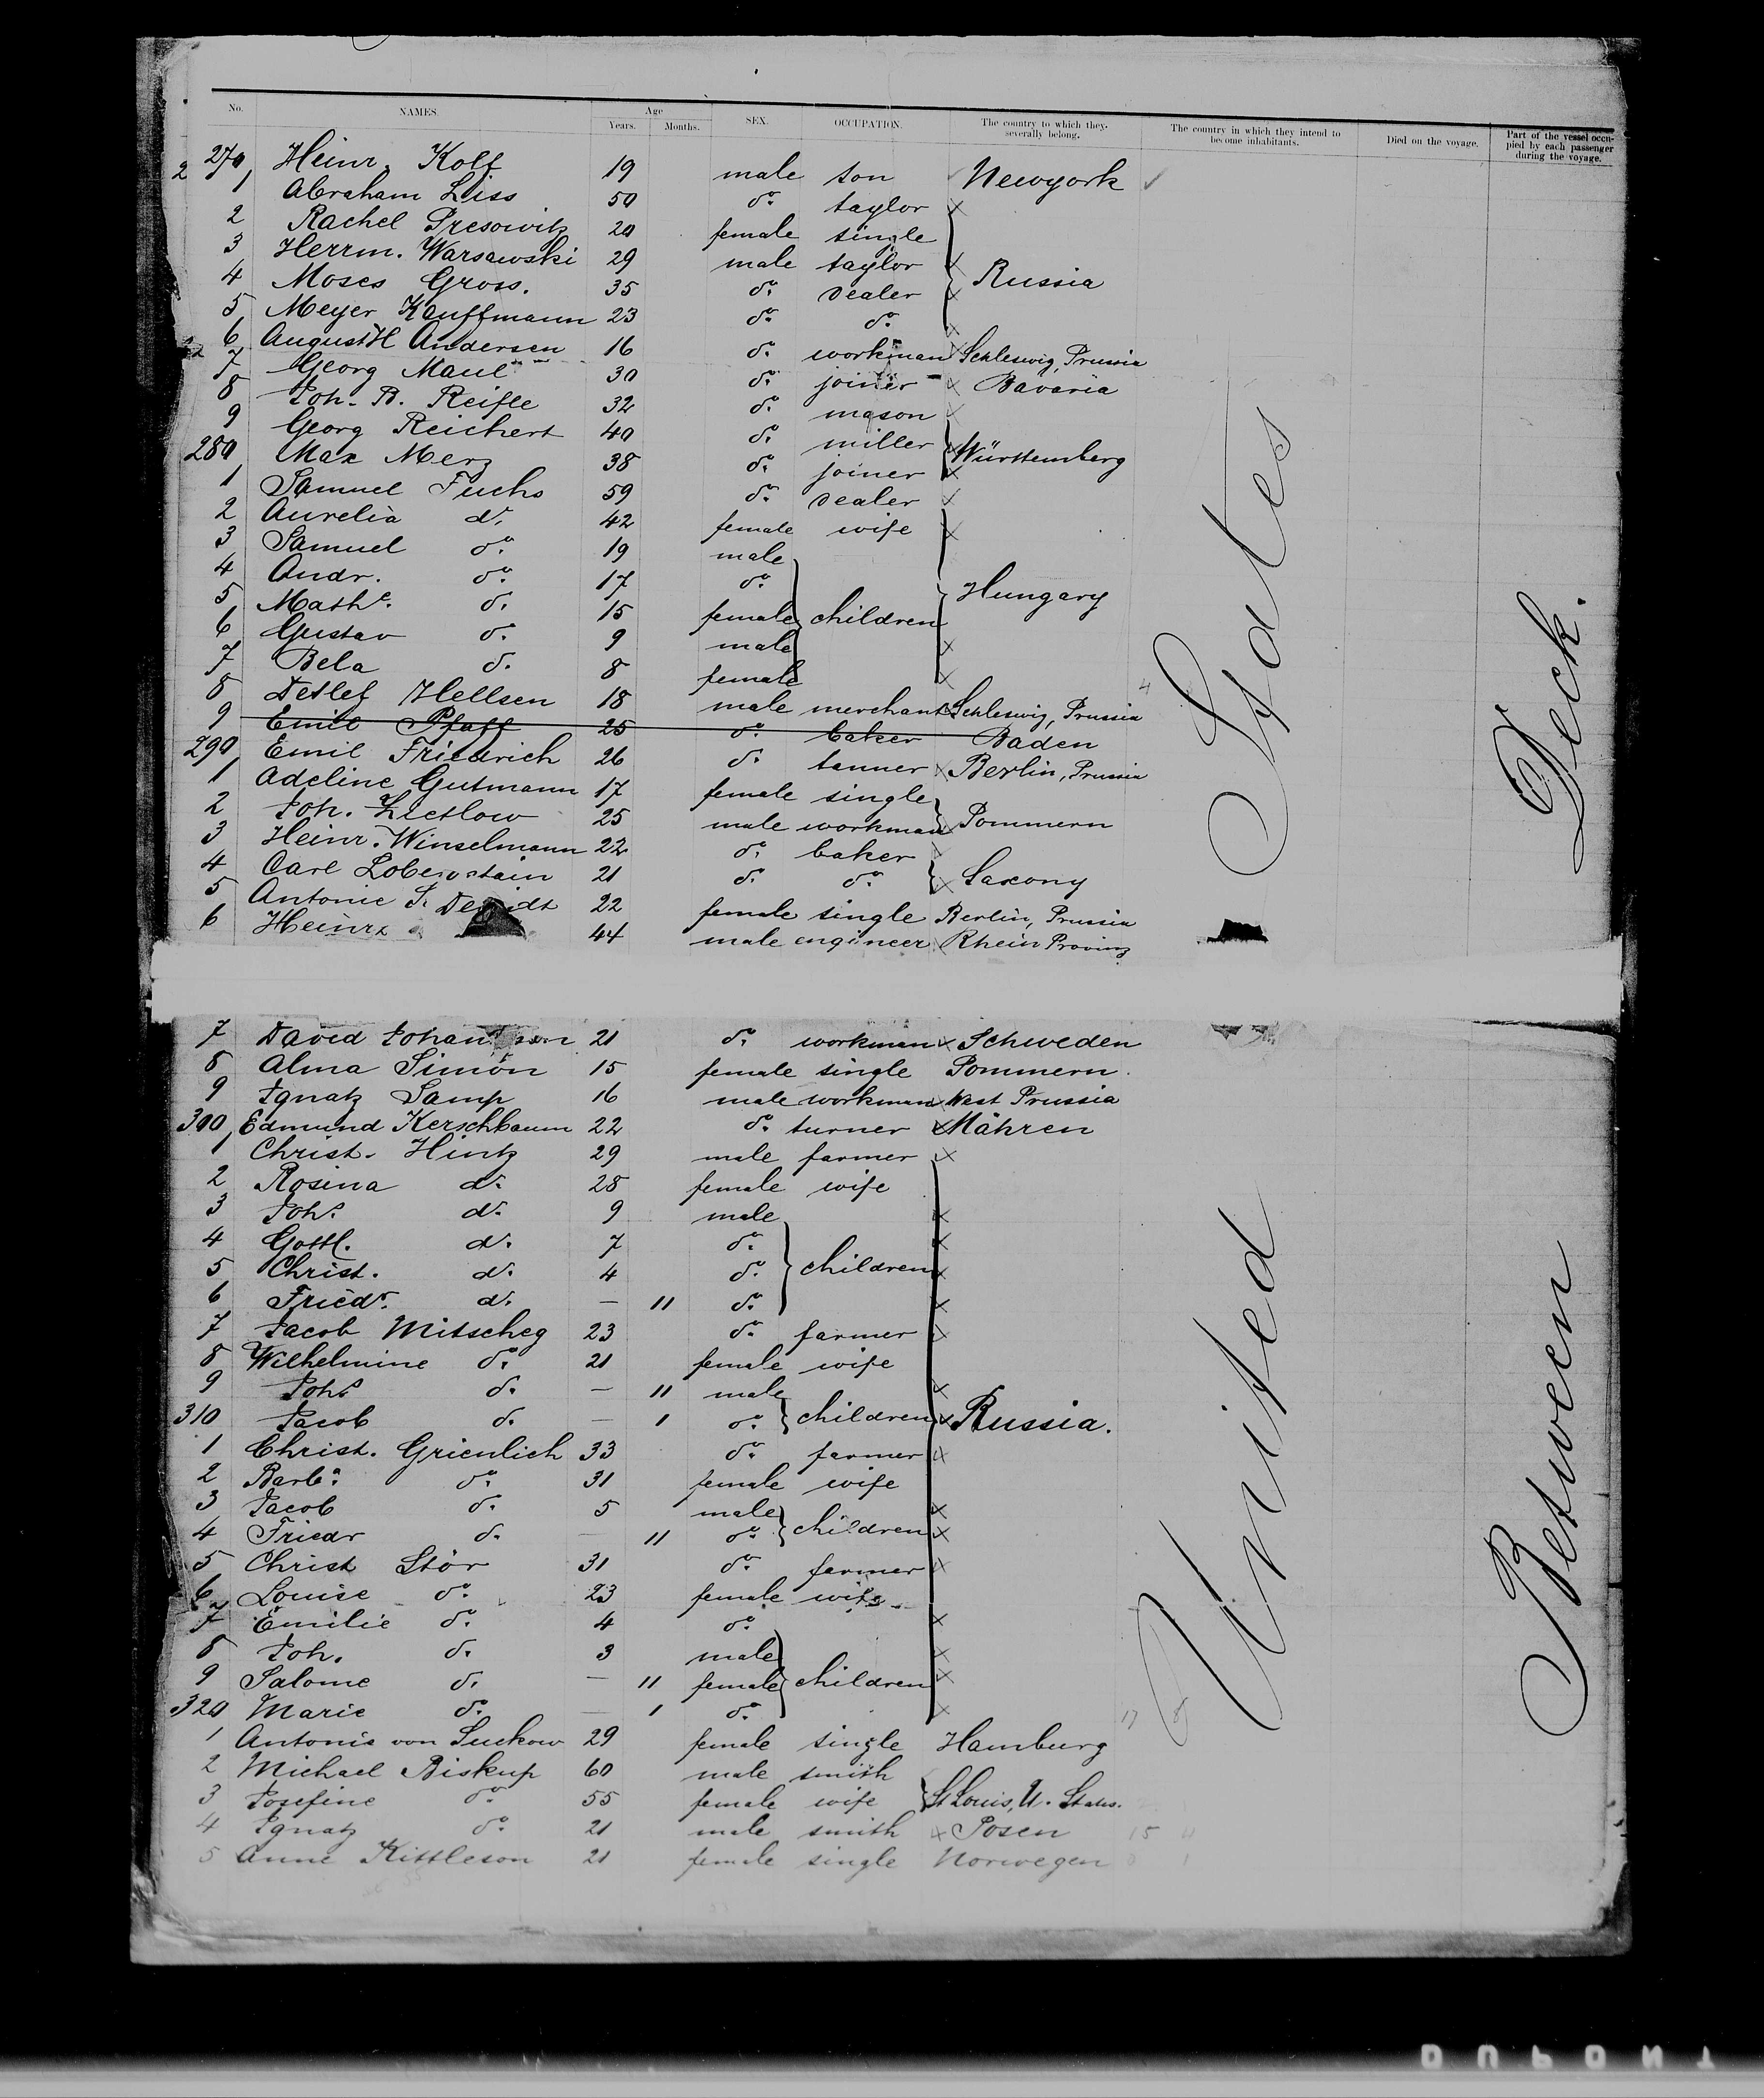 No. NAMES. Age Years. Months. SEX. OCCUPATION. The country to which they severally belong. The country in which they intend to become inhabitants. Died on the voyage. Part of the vessel occupied by each passenger during the voyage.
2 270 Heinr. Kolf 19 male son Newyork
1 Abraham Liss 50 do. taylor
2 Rachel Presowitz 20 female single
3 Herrm. Warsawski 29 male taylor
Russia
4 Moses Gross. 35 do. dealer
5 Meyer Kauffmann 23 do. do.
6 August H Andersen 16 do. workman Schleswig, Prussia
7 Georg Maul 30 do. joiner Bavaria
8 Joh. B. Reifle 32 do. mason
9 Georg Reichert 40 do. miller Württemberg
280 Max Merz 38 do. joiner
1 Samuel Fuchs 59 do. dealer
2 Aurelia do. 42 female wife
3 Samuel do. 19 male
4 Andr. do. 17 do. Hungary
5 Mathe. do. 15 female children
6 Gustav do. 9 male
7 Bela do. 8 female
8 Detlef Hellsen 18 male merchant Schleswig, Prussia
9 Emil Pfaff 25 do. baker Baden
290 Emil Friedrich 26 do. tanner Berlin, Prussia
1 Adeline Gutmann 17 female single
2 Joh. Lietlow 25 male workman Pommern
3 Heinr. Winselmann 22 do. baker
4 Carl 21 do. do. Saxony
5 Antonie 22 female single Berlin, Prussia
6 Heinr. 44 male engineer Rhein Provinz
7 David 21 do. workman Schweden
8 Alma Simon 15 female single Pommern
9 Ignatz Samp 16 male workman West Prussia
300 Edmund Kerschbaum 22 do. turner Mähren
1 Christ. Hintz 29 male farmer
2 Rosina do. 28 female wife
3 Joh. do. 9 male
4 Gottl. do. 7 do.
5 Christ. do. 4 do. children
6 Friedr. do. — 11 do.
7 Jacob Mitscheg 23 do. farmer
8 Wilhelmine do. 21 female wife
9 Joh. do. — 11 male
310 Jacob do. — 1 do. children Russia.
1 Christ. Grienlich 33 do. farmer
2 Barba. do. 31 female wife
3 Jacob do. 5 male
4 Friedr do. — 11 do. children
5 Christ Stör 31 do. farmer
6 Louise do. 23 female wife
7 Emilie do. 4 do.
8 Joh. do. 3 male
9 Salome do. — 11 female children
320 Marie do. — 1 do.
1 Antonie von Suckow 29 female single Hamburg
2 Michael Biskup 60 male smith
3 Josefine do. 55 female wife St Louis, U. States.
4 Ignatz do. 21 male smith Posen
5 Anne Kittleson 21 female single Norwegen
United States
Between Deck.
DUPONT